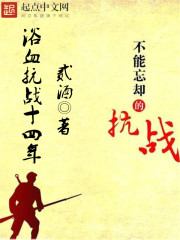 起点中文网
不能忘却的抗战
浴血抗战十四年
贰酒 著